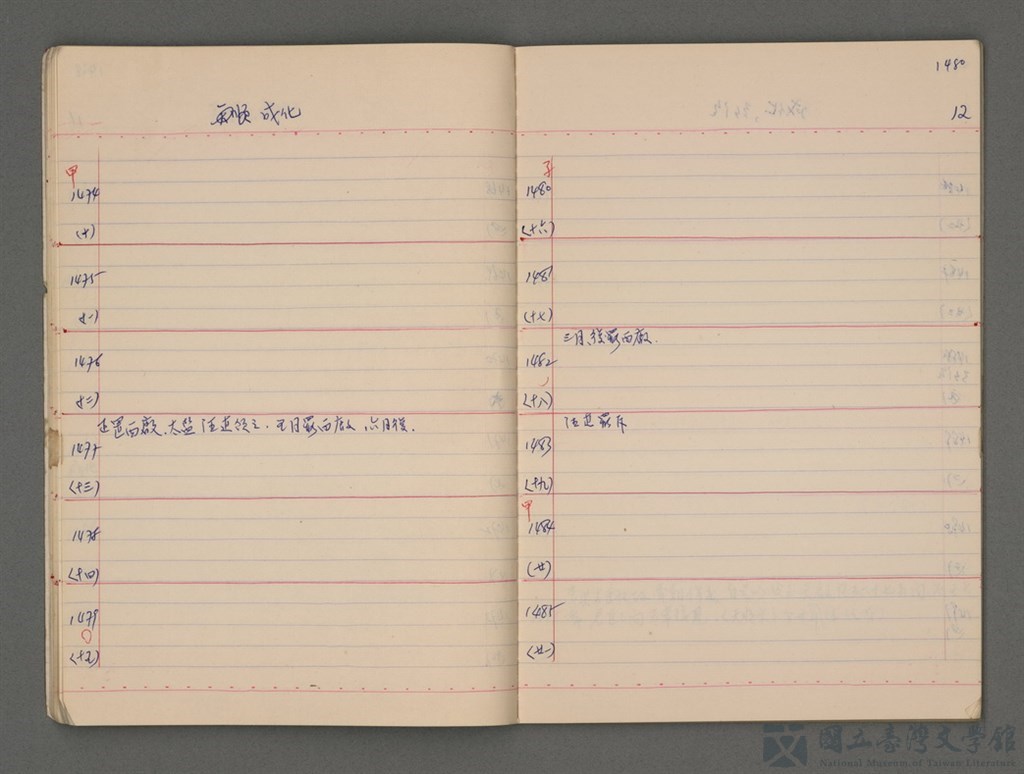 成化
甲
1474
(十)
1475
(十一)
1476
(十二)
正置西廠,太監汪直領之.五月罷西廠,六月復.
1477
(十三)
1478
(十四)
1479
(十五)
1480
12
子
1480
(十六)
1481
(十七)
三月,復罷西廠.
1482
(十八)
汪直罷斥
1483
(十九)
甲
1484
(廿)
1485
(廿一)
國立臺灣文學館
National Museum of Taiwan Literature